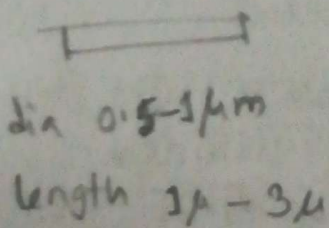 dia 0.5-1μm
length 1μ - 3μ